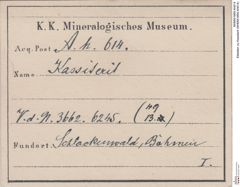 K. K. Mineralogisches Museum.
Acq. Post A. h. 614.
Name Kassiterit
V. d. N. 3662. 6245. (49
Fundort. Schlackenwald, Böhmen
I.